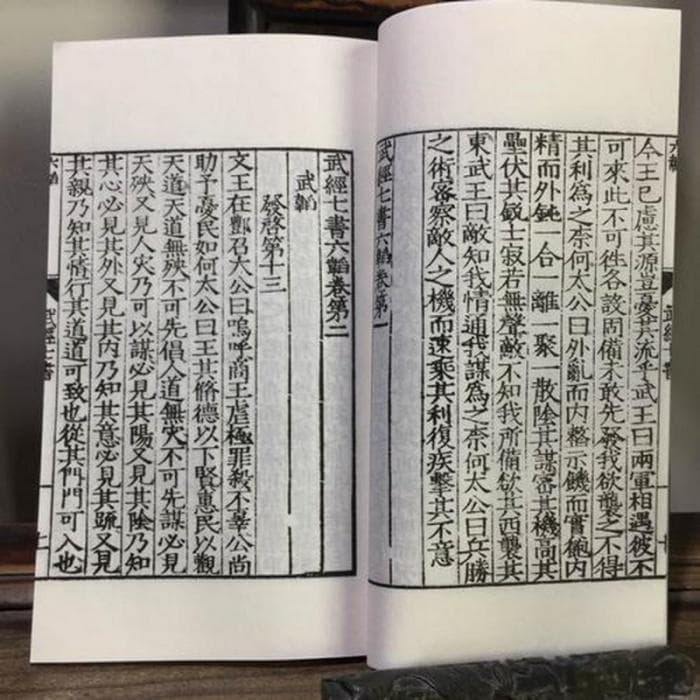 今王已慮其源豈憂其流乎武王曰兩軍相遇彼不
可來此不可徃各設固備未敢先發我欲襲之不得
其利爲之柰何太公曰外亂而内整示饑而實飽内
精而外鈍一合一離一聚一散陰其謀密其機高其
壘伏其鋭士寂若無聲敵不知我所備欲其西襲其
東武王曰敵知我情通我謀爲之柰何太公曰兵勝
之術密察敵人之機而速乘其利復疾擊其不意
武經七書六韜卷第一
六韜
武經七書
十
武經七書六韜卷第二
武韜
發啓第十三
文王在酆召太公曰嗚呼商王虐極罪殺不辜公尚
助予憂民如何太公曰王其脩德以下賢惠民以觀
天道天道無殃不可先倡人道無灾不可先謀必見
天殃又見人灾乃可以謀必見其陽又見其陰乃知
其心必見其外又見其内乃知其意必見其疏又見
其親乃知其情行其道道可致也從其門門可入也
六韜
武經七書
十一